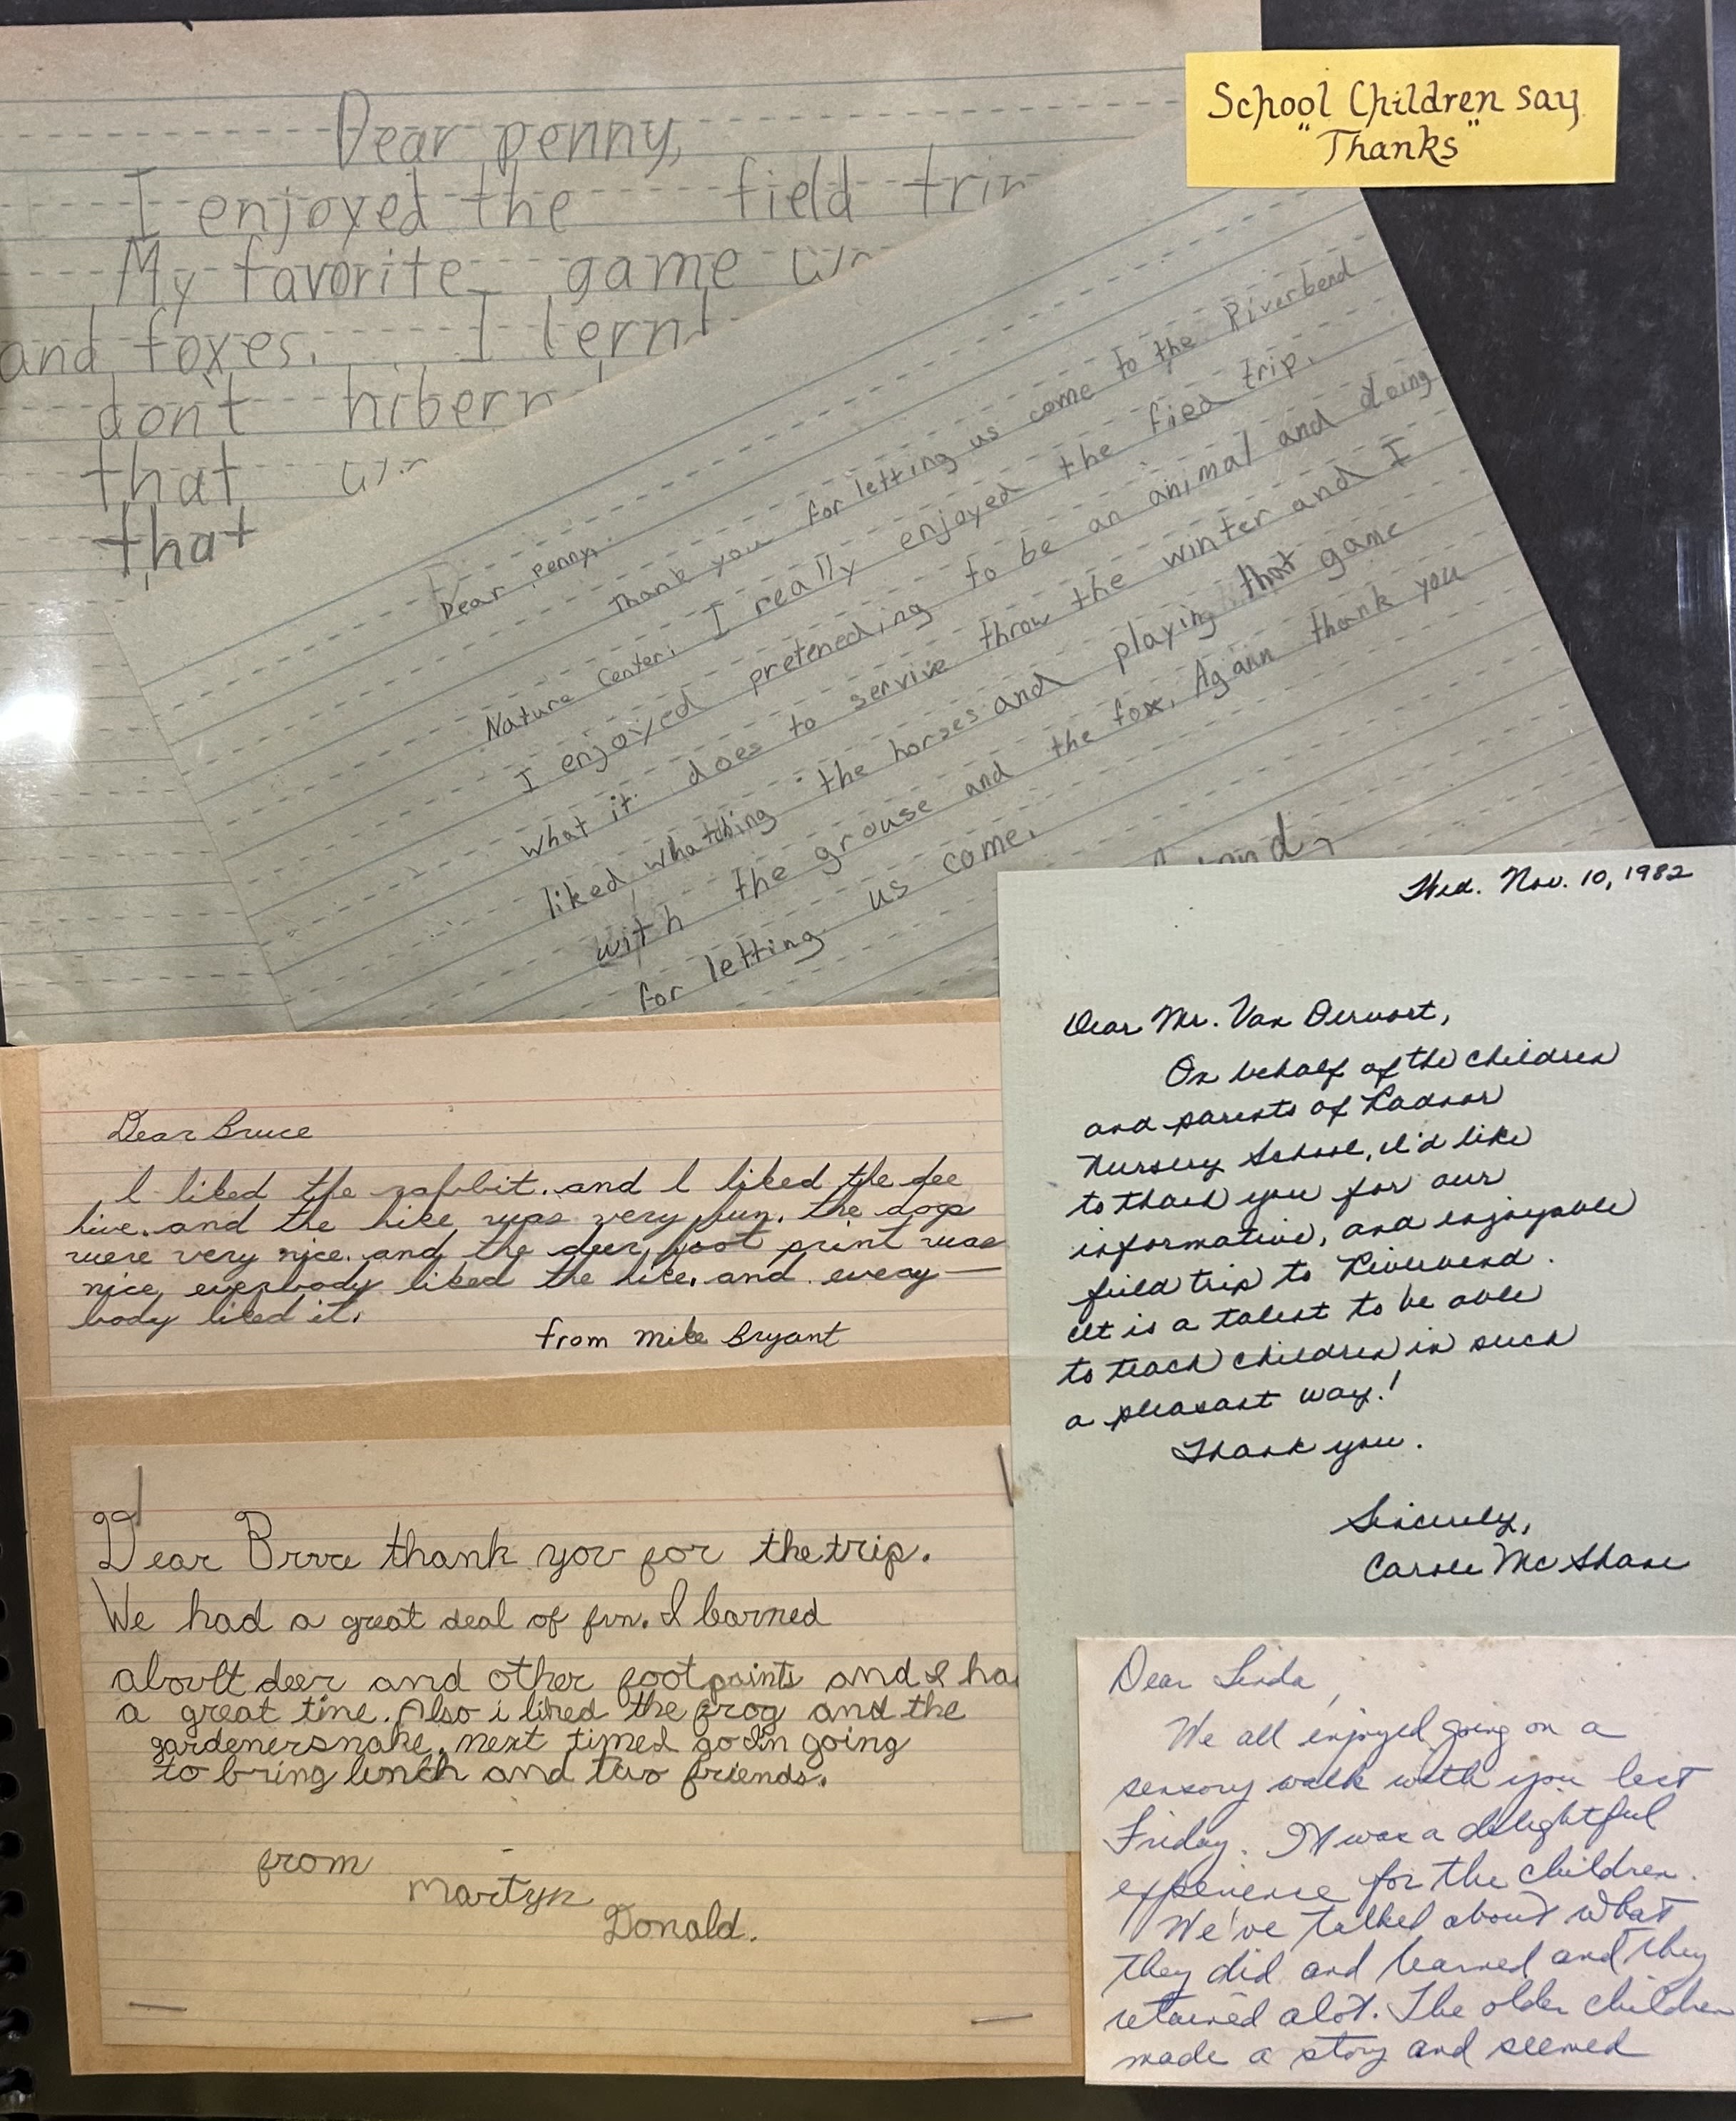 School Children say
"Thanks"
Dear penny,
I enjoyed the field
My favorite game
and foxes. I lern
don't hibern
that
that
Dear Penny
Thank you for letting us come to the Riverbend
Nature Center. I really enjoyed the fied trip.
I enjoyed preteneding to be an animal and doing
what it does to servive throw the winter and I
liked whatching the horses and playing that game
with the grouse and the fox. Again thank you
for letting us come.
Wed. Nov. 10, 1982
Dear Mr. Van Dervort,
On behalf of the children
and parents of Radnor
Nursery School, I'd like
to thank you for our
informative, and enjoyable
field trip to Riverbend.
It is a talent to be able
to teach children in such
a pleasant way!
Thank you.
Sincerely,
Carole McShane
Dear Bruce
I liked the rabbit. and I liked the bee
hive. and the hike was very fun. the dogs
were very nice. and the deer foot print was
nice, everbody liked the hike. and every—
body liked it.
from Mike Bryant
Dear Brvce thank yov for the trip.
We had a great deal of fvn. I larned
abovlt deer and other foot paints and I ha
a great tine. Also i liked the frog and the
gardenersnake. next timeI go Im going
to bring lunch and two friends.
from
Martyn
Donald.
Dear Linda,
We all enjoyed going on a
sensory walk with you last
Friday. It was a delightful
experience for the children.
We've talked about what
they did and learned and they
retained alot. The older children
made a story and seemed